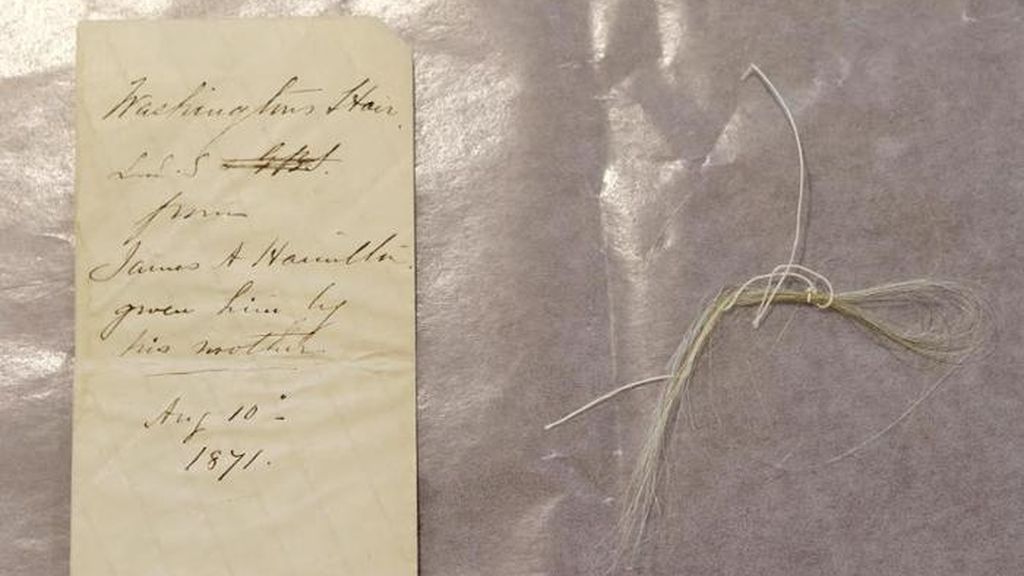 Washingtons Hair,
L.S.S
from
James A Hamilton
given him by
his mother.
Aug 10"
1871.